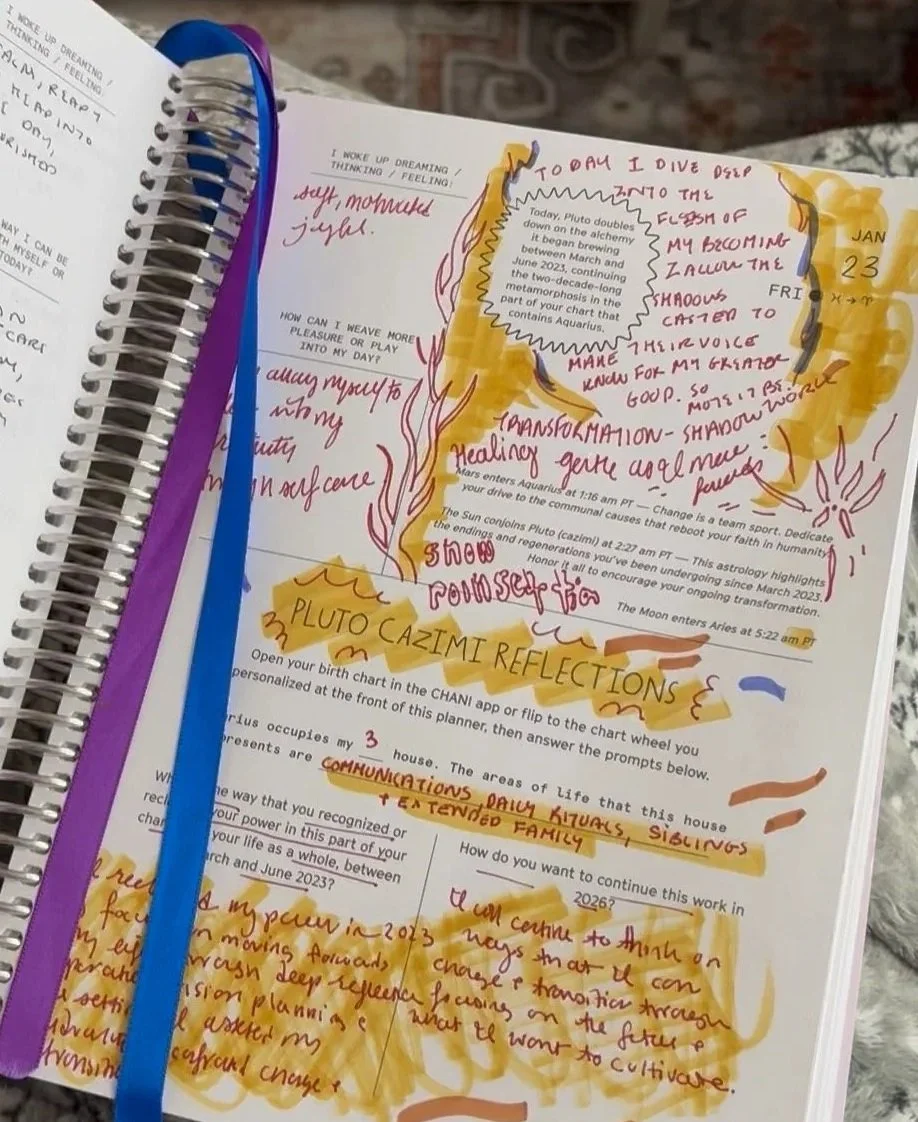 I WOKE UP DREAMING /
THINKING / FEELING:
CALM, READY
DAY,
WAY I CAN BE
TH MYSELF OR
TODAY?
I WOKE UP DREAMING /
THINKING / FEELING:
soft, motivated
joyful.
HOW CAN I WEAVE MORE
PLEASURE OR PLAY
INTO MY DAY?
allow myself to
into my
self care
TODAY I DIVE DEEP
INTO THE
FLESH OF
MY BECOMING
I ALLOW THE
SHADOWS
CASTED TO
MAKE THEIR VOICE
KNOW FOR MY GREATER
GOOD. SO
MOTE IT BE!
Today, Pluto doubles
down on the alchemy
it began brewing
between March and
June 2023, continuing
the two-decade-long
metamorphosis in the
part of your chart that
contains Aquarius.
JAN
23
FRI ♓→♈
TRANSFORMATION - SHADOW WORK
Healing gentle and more :
Mars enters Aquarius at 1:16 am PT — Change is a team sport. Dedicate
your drive to the communal causes that reboot your faith in humanity.
The Sun conjoins Pluto (cazimi) at 2:27 am PT — This astrology highlights
the endings and regenerations you've been undergoing since March 2023.
Honor it all to encourage your ongoing transformation.
The Moon enters Aries at 5:22 am PT
SNOW
POINSETTIA
PLUTO CAZIMI REFLECTIONS
Open your birth chart in the CHANI app or flip to the chart wheel you
personalized at the front of this planner, then answer the prompts below.
rius occupies my 3 house. The areas of life that this house
presents are COMMUNICATIONS, DAILY RITUALS, SIBLINGS
+ EXTENDED FAMILY
Wh e way that you recognized or
recl your power in this part of your
char your life as a whole, between
rch and June 2023?
my power in 2023
moving forwards
through deep reflection
vision planning &
asserted my
change &
How do you want to continue this work in
2026?
I will continue to think on
ways that I can
change & transition through
focusing on the future &
what I want to cultivate.